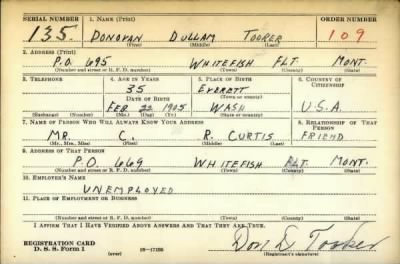 SERIAL NUMBER 1. NAME (Print) ORDER NUMBER
135. DONOVAN DULLAM TOOKER 109
(First) (Middle) (Last)
2. ADDRESS (Print)
P.O. 695 WHITEFISH FLT. MONT.
(Number and street or R. F. D. number) (Town) (County) (State)
3. TELEPHONE 4. AGE IN YEARS 5. PLACE OF BIRTH 6. COUNTRY OF CITIZENSHIP
35 EVERETT
DATE OF BIRTH (Town or county)
FEB. 22 1905 WASH U.S.A.
(Exchange) (Number) (Mo.) (Day) (Yr.) (State or country)
7. NAME OF PERSON WHO WILL ALWAYS KNOW YOUR ADDRESS 8. RELATIONSHIP OF THAT PERSON
MR. C. R. CURTIS FRIEND
(Mr., Mrs., Miss) (First) (Middle) (Last)
9. ADDRESS OF THAT PERSON
P.O. 669 WHITEFISH FLT. MONT.
(Number and street or R. F. D. number) (Town) (County) (State)
10. EMPLOYER'S NAME
UNEMPLOYED
11. PLACE OF EMPLOYMENT OR BUSINESS
(Number and street or R. F. D. number) (Town) (County) (State)
I AFFIRM THAT I HAVE VERIFIED ABOVE ANSWERS AND THAT THEY ARE TRUE.
REGISTRATION CARD
D. S. S. Form 1 (over) Don D. Tooker
(Registrant's signature)